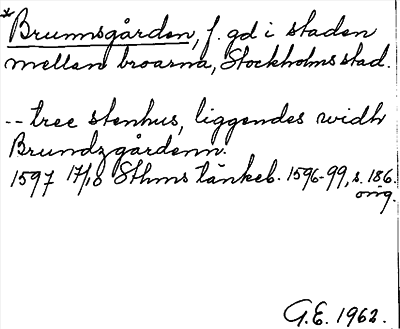 *Brunnsgården, f. gd i staden
mellan broarna, Stockholms stad.
-- tree stenhus, liggendes widh
Brundzgårdenn.
1597 17/10 Sthms tänkeb. 1596-99, s. 186.
orig.
G.E. 1962.